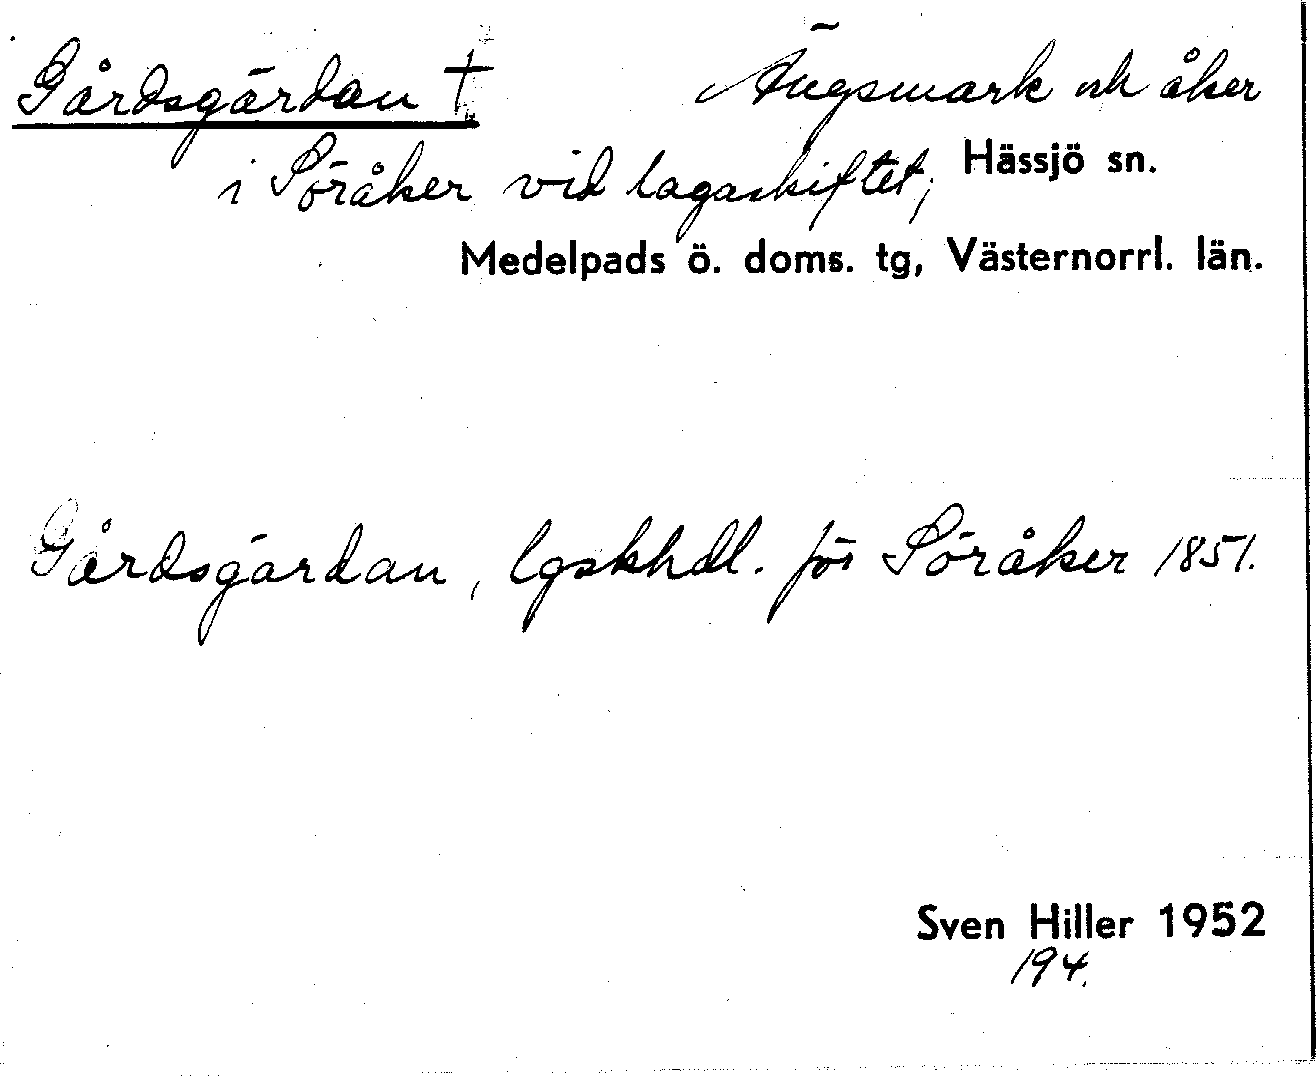 Gårdsgärdan † Ängsmark och åker
i Söråker vid lagaskiftet, Hässjö sn.
Medelpads ö. doms. tg, Västernorrl. län.
Gårdsgärdan, lgskhdl. för Söråker 1851.
Sven Hiller 1952
194.